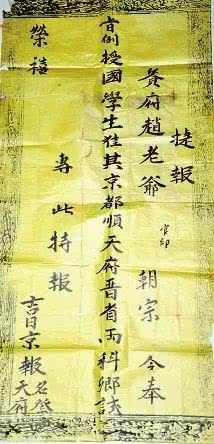 捷報
貴府趙老爺 官印 朝宗 今奉
旨例授國學生 往其京都順天府晋省兩科鄉試
專此特報
榮禧
吉日京報
天府